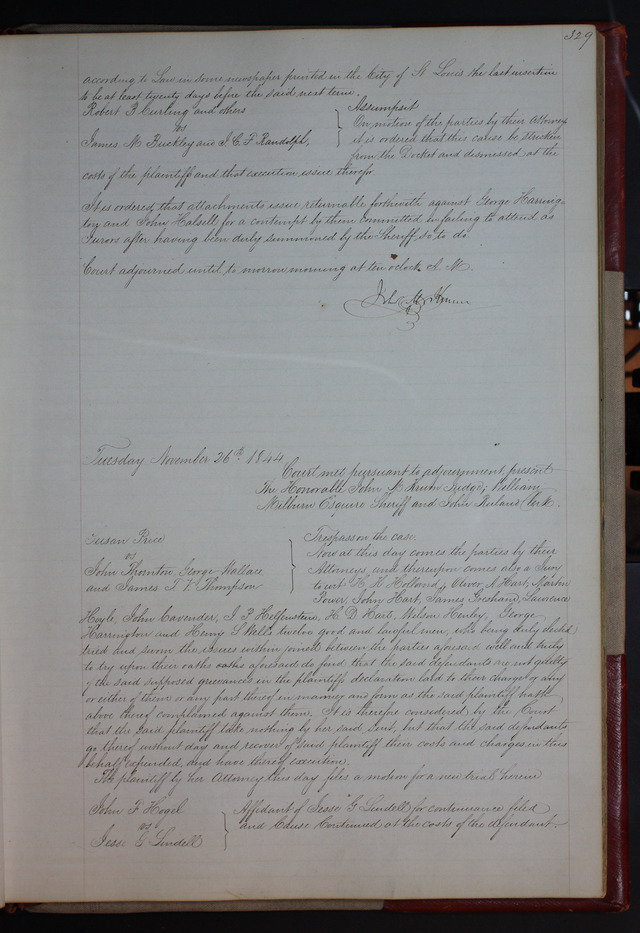 329
according to Law in some newspaper printed in the City of St Louis the last insertion
to be at least twenty days before the said next term.
Robert B Curling and others
vs
James M Buckley and J. C. F. Randolph,
Assumpsit
On motion of the parties by their Attorneys
it is ordered that this cause be stricken
from the Docket and dismissed at the
costs of the plaintiff and that execution issue therefor.
It is ordered, that attachments issue returnable forthwith against George Harring-
ton and John Halsell for a contempt by them committed in failing to attend as
Jurors after having been duly summoned by the Sheriff so to do.
Court adjourned until to morrow morning at ten oclock A. M.
John M. Krum
Tuesday November 26th 1844
Court met pursuant to adjournment present
The Honorable John M Krum Judge, William
Milburn Esquire Sheriff and John Ruland Clerk.
Susan Price
vs
John Thornton, George Wallace
and James T. V. Thompson
Trespass on the case.
Now at this day comes the parties by their
Attorneys, and thereupon comes also a Jury
to wit H. N. Holland, Oliver A. Hart, Martin
Power, John Hart, James Gresham, Lawrence
Hoyle, John Cavender, J. P. Helfenstein, H. D. Hart, Wilson Henley, George
Harrington and Henry S Wells twelve good and lawful men, who being duly elected
tried and sworn the issues within joined between the parties aforesaid well and truly
to try upon their oaths oaths aforesaid do find that the said defendants are not guilty
of the said supposed grievances in the plaintiffs declaration laid to their charge or any
or either of them or any part thereof in manner and form as the said plaintiff hath
above thereof complained against them. It is therefore considered by the Court
that the said plaintiff take nothing by her said Suit, but that the said defendants
go thereof without day and recover of said plaintiff their costs and charges in this
behalf expended, and have thereof execution.
The plaintiff by her Attorney this day files a motion for a new trial herein
John F Hogel
vs
Jesse G Lindell
Affidavit of Jesse G Lindell for continuance filed
and Cause Continued at the costs of the defendant.